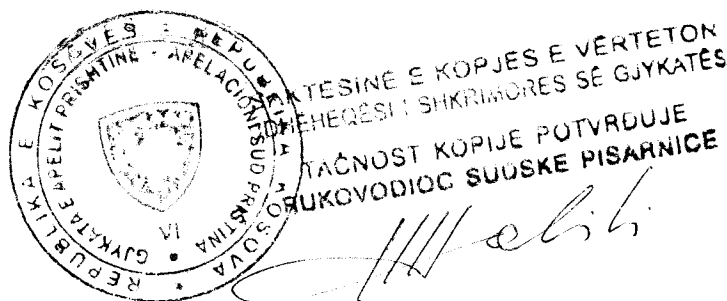 REPUBLIKA E KOSOVËS * REPUBLIKA KOSOVA *
GJYKATA E APELIT PRISHTINË - APELACIONI SUD PRIŠTINA •
VI
SAKTËSINË E KOPJES E VËRTETON
UDHËHEQËSI I SHKRIMORES SË GJYKATËS
TAČNOST KOPIJE POTVRĐUJE
RUKOVODIOC SUDSKE PISARNICE